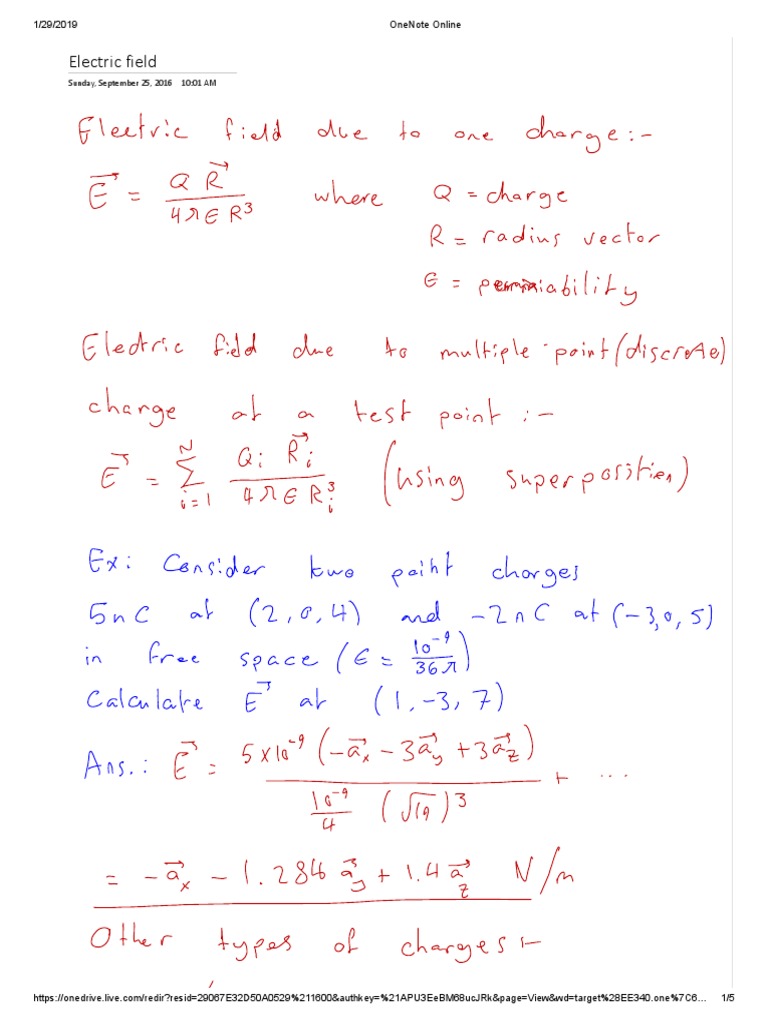 1/29/2019 OneNote Online
Electric field
Sunday, September 25, 2016 10:01 AM
Electric field due to one charge:-
E⃗ = Q R⃗ / 4πϵR³ where Q = charge
R = radius vector
ϵ = permiability
Electric field due to multiple point (discrete)
charge at a test point :-
E⃗ = Σ_{i=1}^{N} Qᵢ R⃗ᵢ / 4πϵRᵢ³ (using superposition)
Ex: Consider two point charges
5nC at (2,0,4) and -2nC at (-3,0,5)
in free space (ϵ = 10⁻⁹ / 36π)
Calculate E⃗ at (1,-3,7)
Ans.: E⃗ = 5×10⁻⁹ (-a⃗x - 3a⃗y + 3a⃗z) / 10⁻⁹/4 (√19)³ + ...
= -a⃗x - 1.284 a⃗y + 1.4 a⃗z N/m
Other types of charges:-
https://onedrive.live.com/redir?resid=29067E32D50A0529%211600&authkey=%21APU3EeBM68ucJRk&page=View&wd=target%28EE340.one%7C6... 1/5